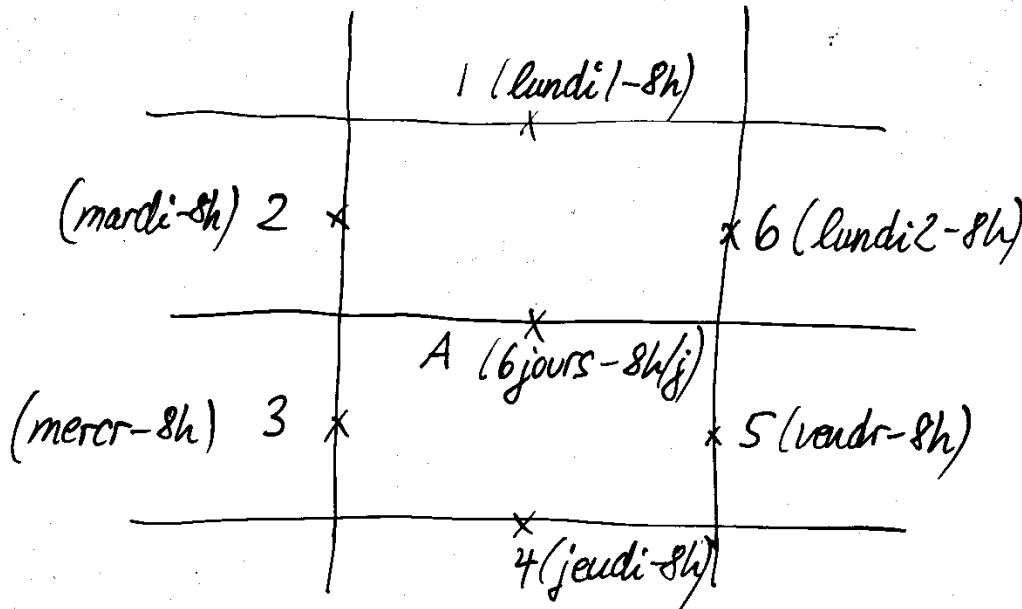 1 (lundi1-8h)
(mardi-8h) 2
6 (lundi2-8h)
A (6 jours-8h/j)
(mercr-8h) 3
5 (vendr-8h)
4 (jeudi-8h)